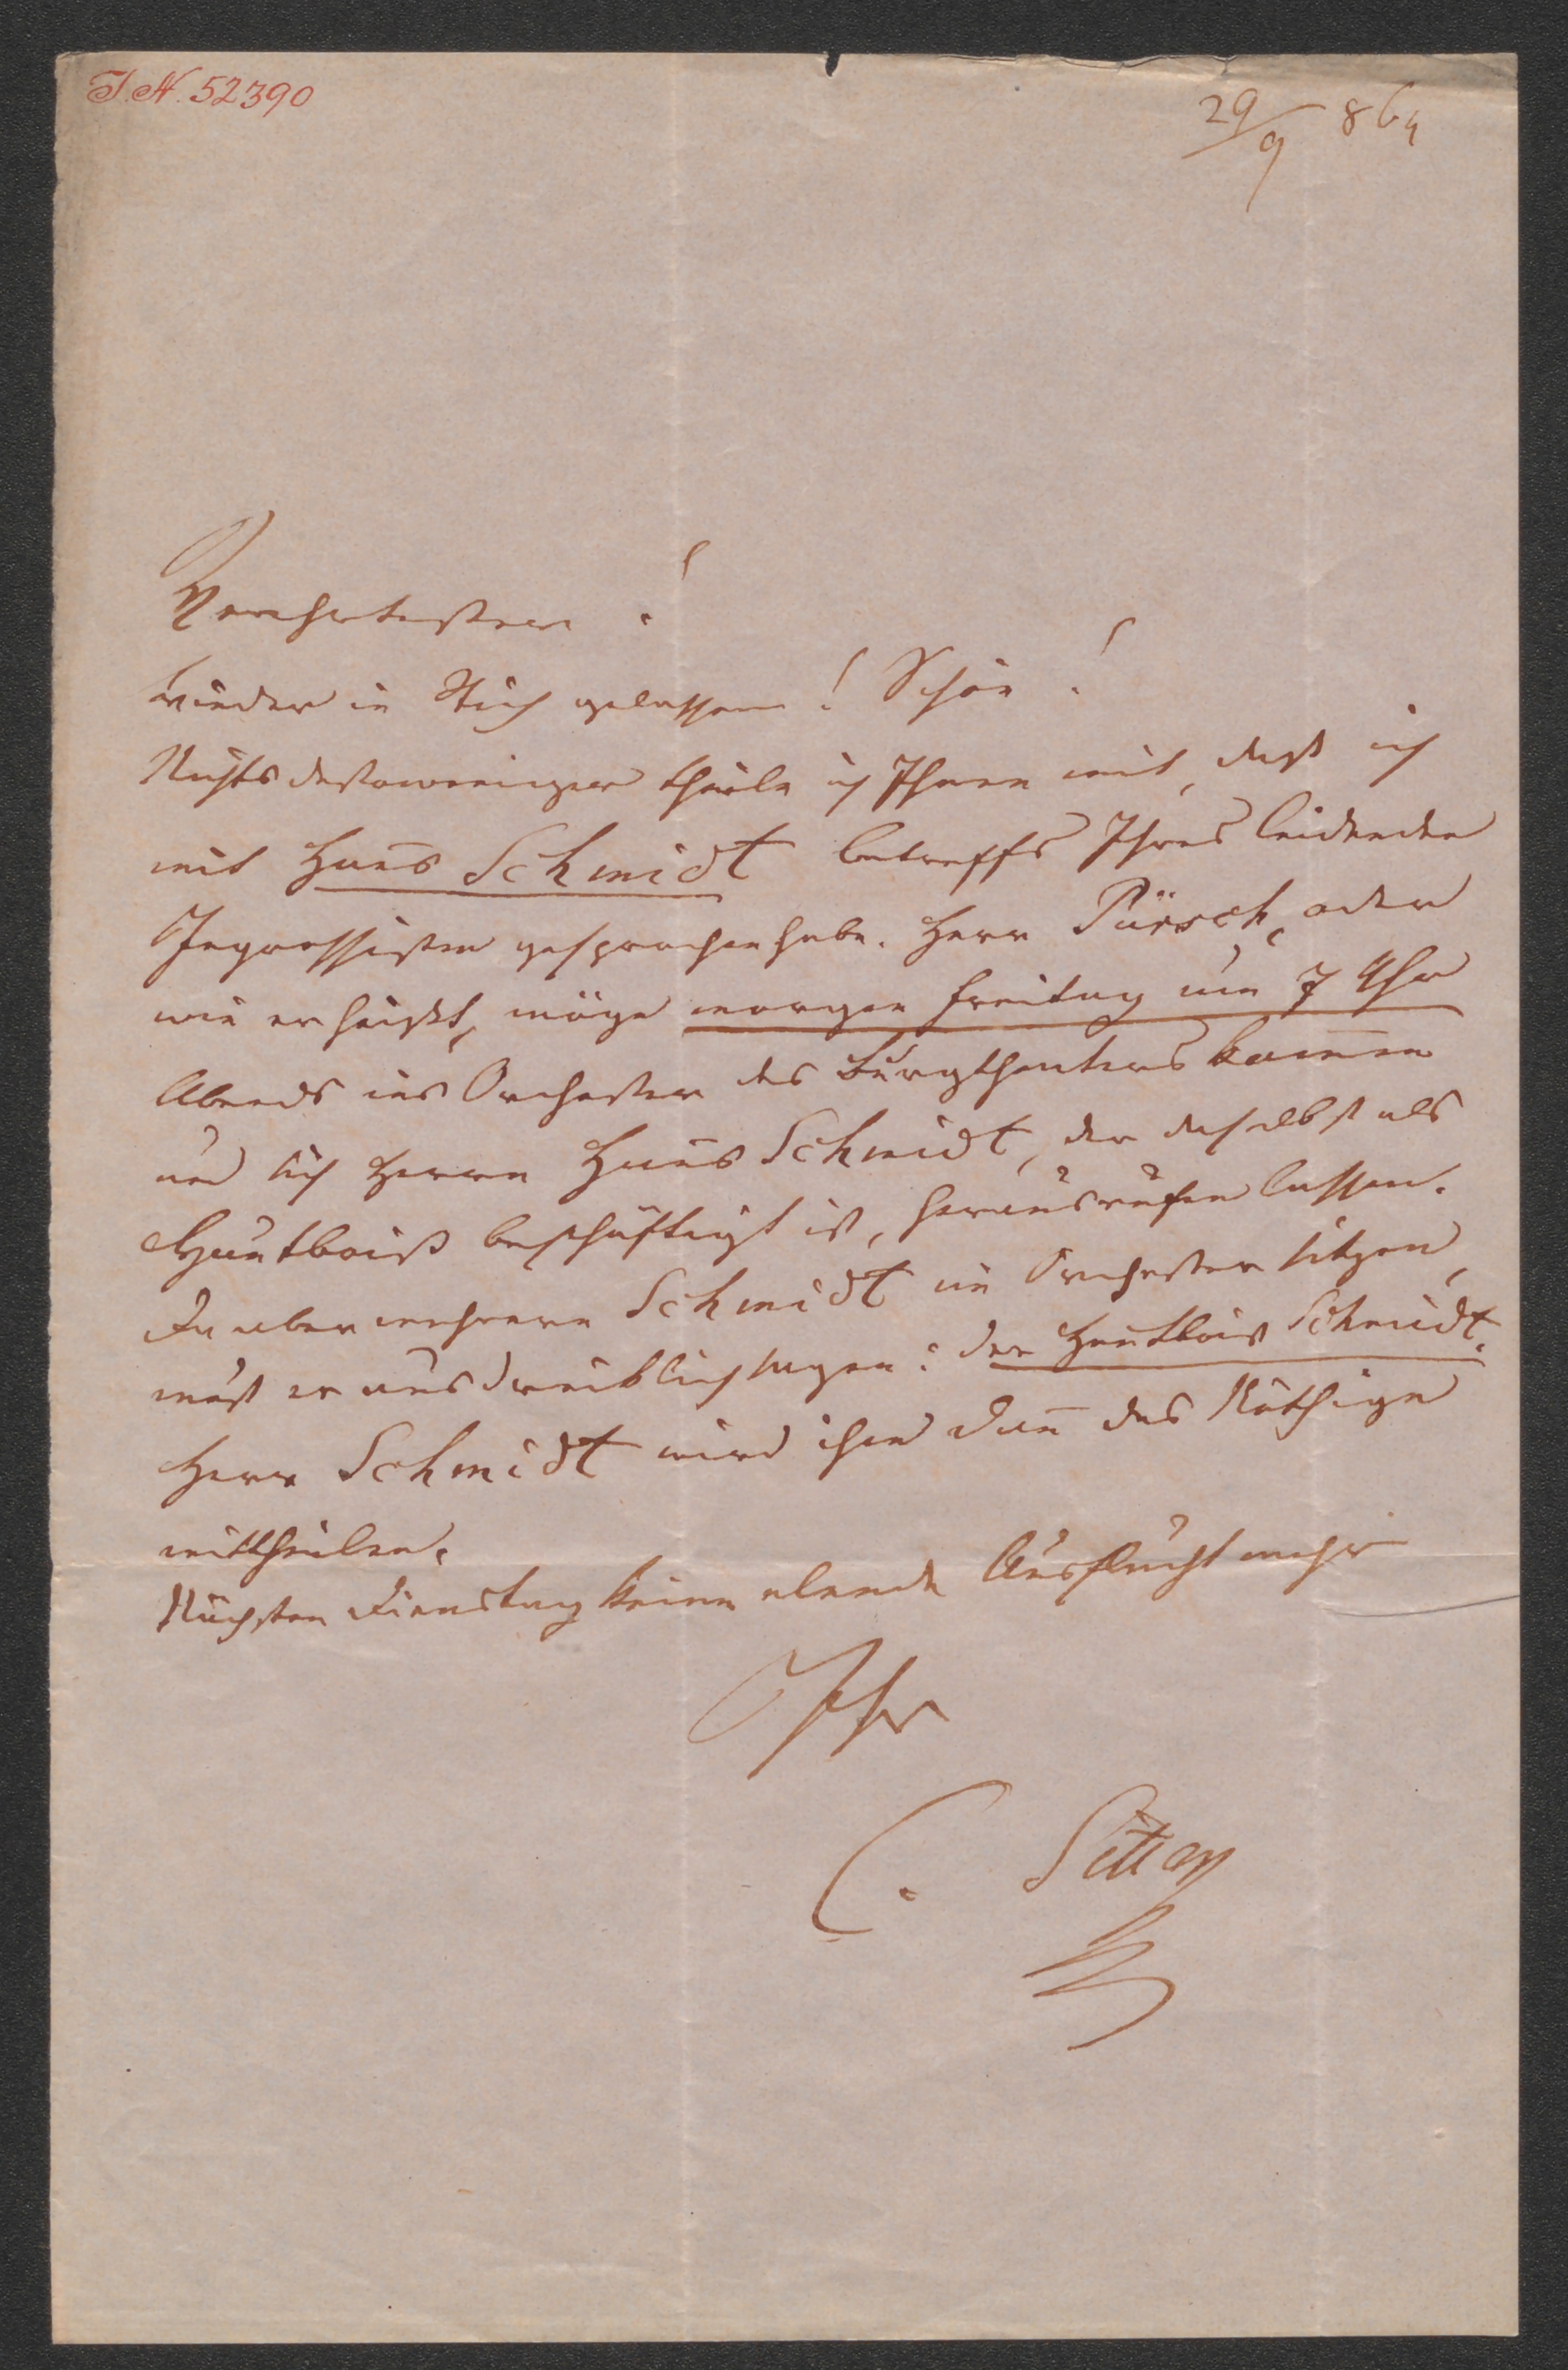 I.N. 52390
29/9 864
Verehrtester!
Wieder in Stich gelassen! Schön!
Nichts destoweniger theile ich Ihnen mit, daß ich
mit Hans Schmidt betreffs Ihres leidenden
Ingrossisten gesprochen habe. Herr Pürsch, oder
wie er heißt, möge morgen Freitag um 7 Uhr
Abends ins Orchester des Burgtheaters kom̄en
und sich Herrn Hans Schmidt, der daselbst als
Hautboist beschäftigt ist, herausrufen lassen.
Da aber mehrere Schmidt im Orchester sitzen,
muß er ausdrücklich sagen: der Hautboist Schmidt.
Herr Schmidt wird ihm dan̄ das Nöthige
mittheilen.
Nächsten Dienstag keine elende Ausflucht mehr
Ihr
C. Sitter